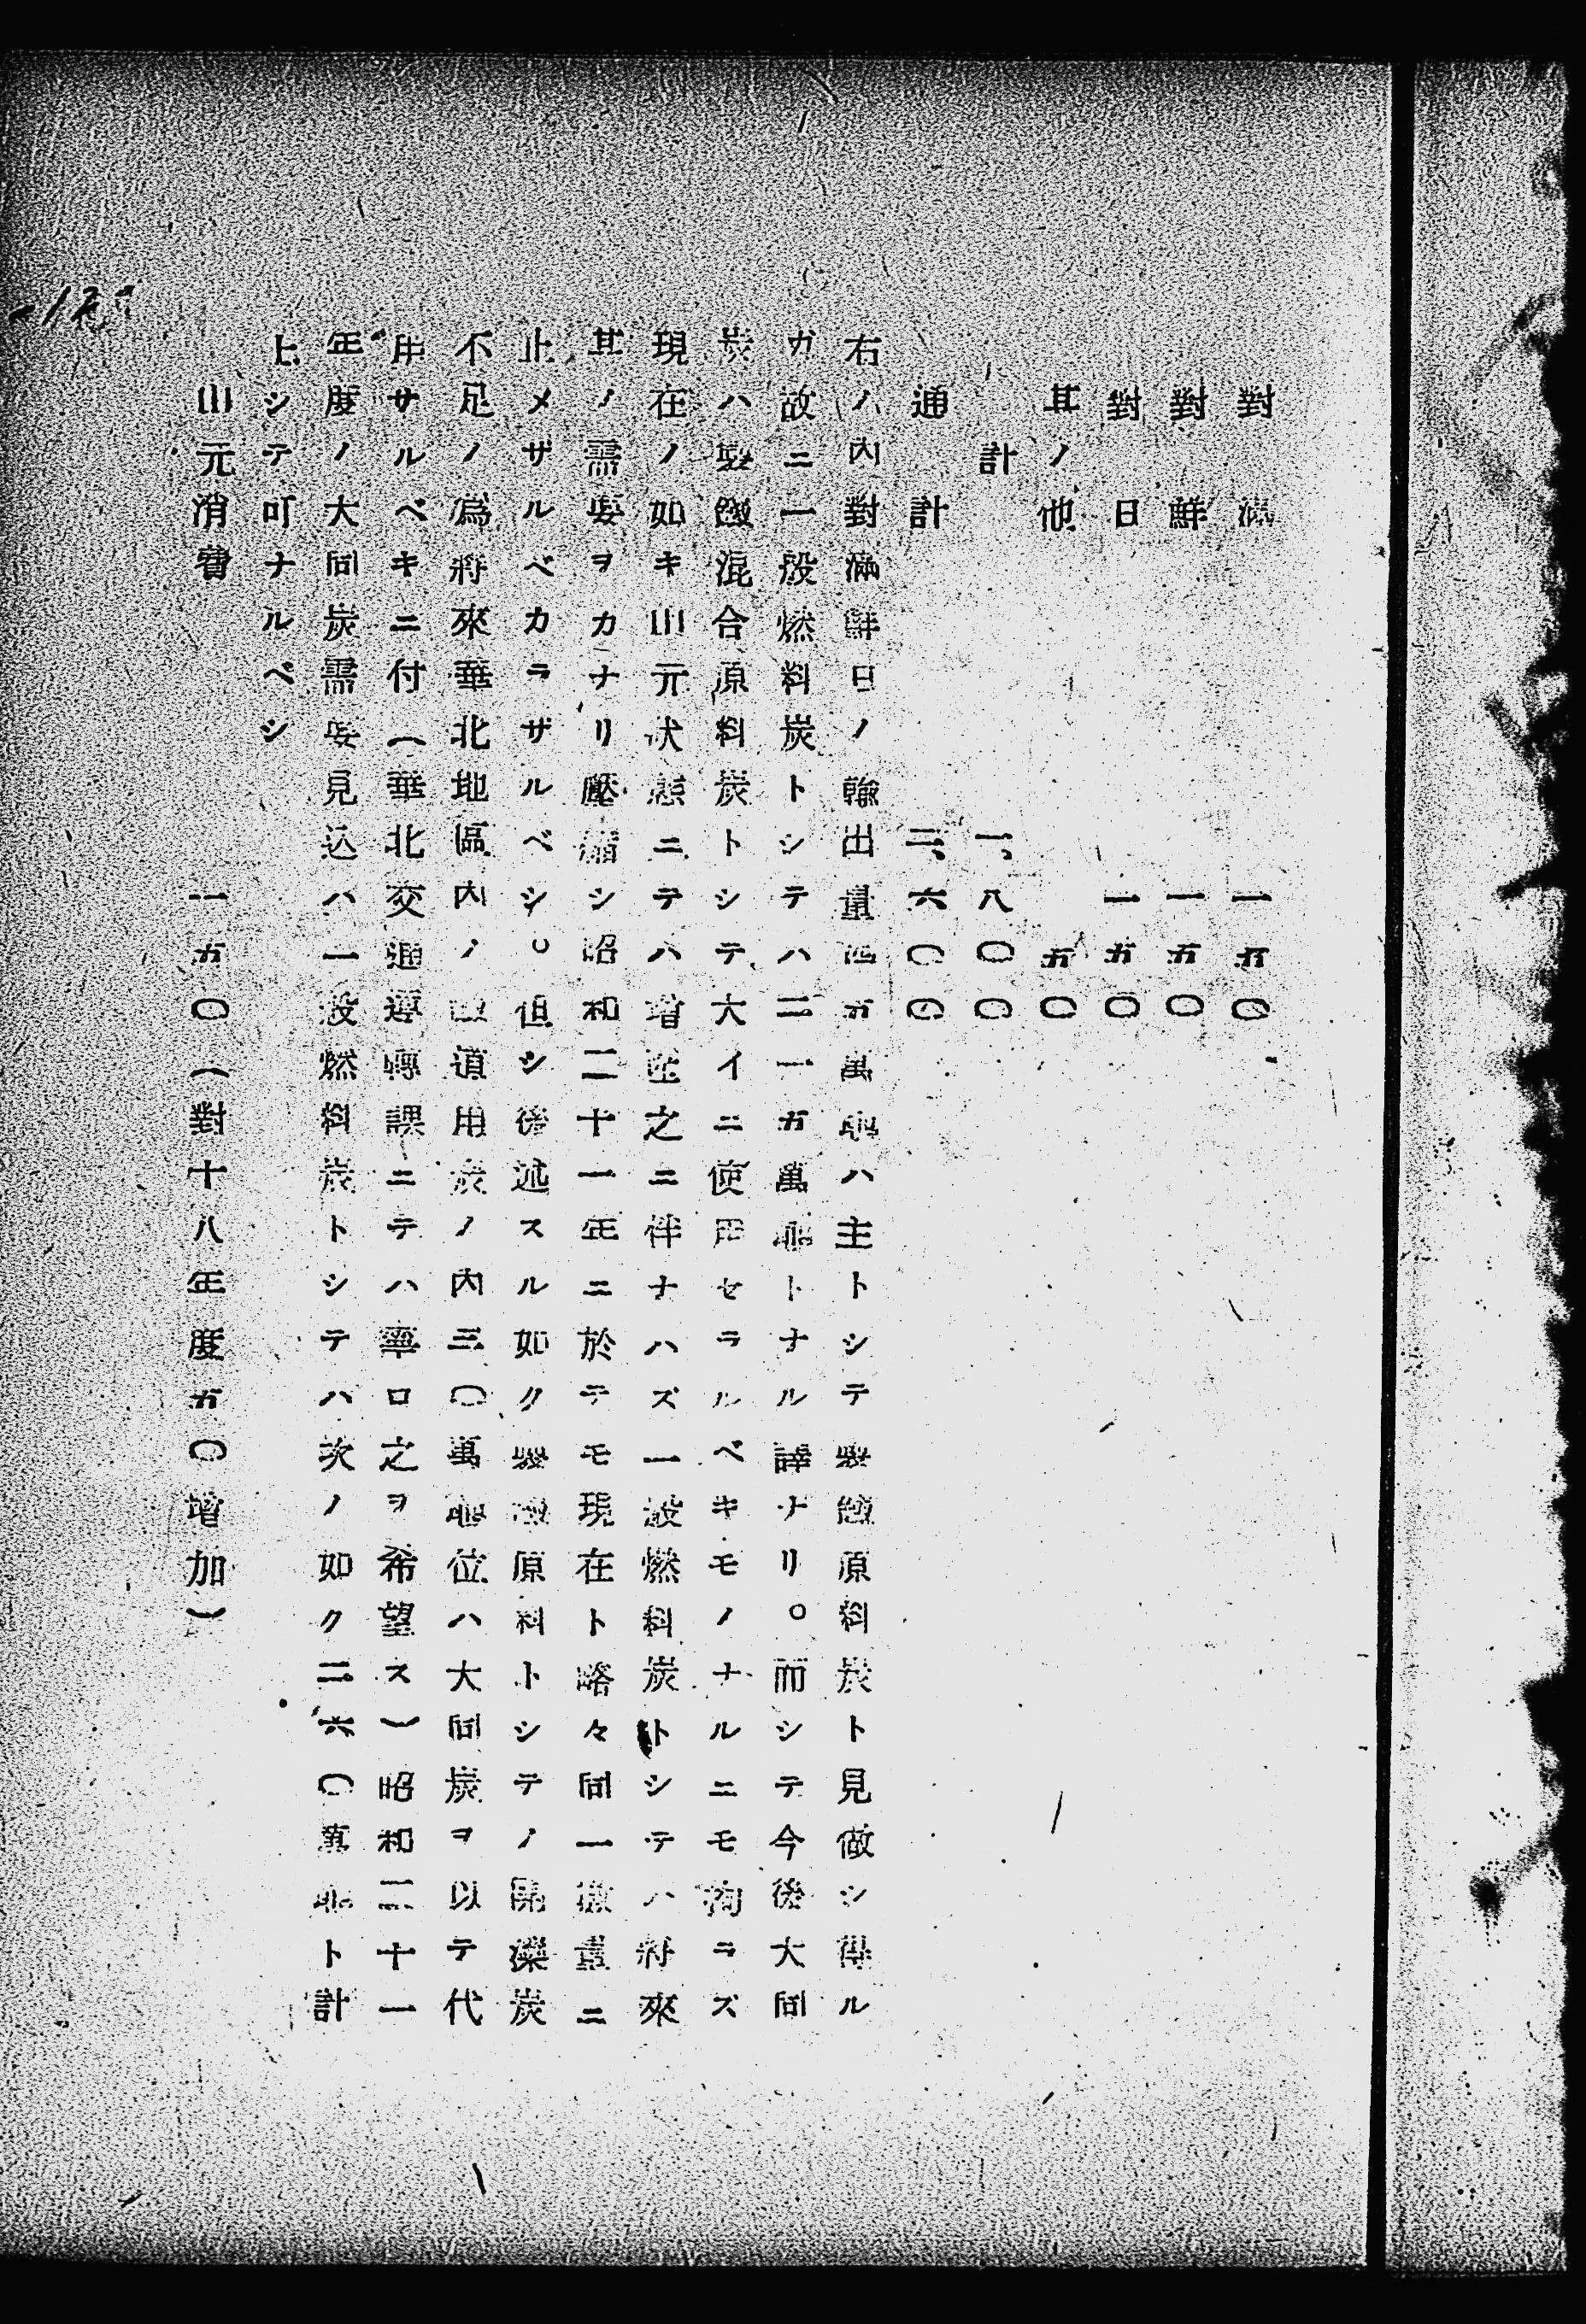 對滿　一五〇
對鮮　一五〇
對日　一五〇
其ノ他　五〇
計　一、八〇〇
通計　二、六〇〇
右ノ內對滿鮮日ノ輸出量四五萬瓲ハ主トシテ製鐵原料炭ト見做シ得ル
ガ故ニ一般燃料炭トシテハ二一五萬瓲トナル譯ナリ。而シテ今後大同
炭ハ製鐵混合原料炭トシテ大イニ使用セラルベキモノナルニモ拘ラズ
現在ノ如キ山元狀態ニテハ增產之ニ伴ナハズ一般燃料炭トシテハ將來
其ノ需要ヲカナリ壓縮シ昭和二十一年ニ於テモ現在ト略々同一數量ニ
止メザルベカラザルベシ。但シ後述スル如ク製鐵原料トシテノ開灤炭
不足ノ爲將來華北地區內ノ鐵道用炭ノ內三〇萬瓲位ハ大同炭ヲ以テ代
用サルベキニ付（華北交通運轉課ニテハ寧ロ之ヲ希望ス）昭和二十一
年度ノ大同炭需要見込ハ一般燃料炭トシテハ次ノ如ク二六〇萬瓲ト計
上シテ可ナルベシ
山元消費　一五〇（對十八年度五〇增加）